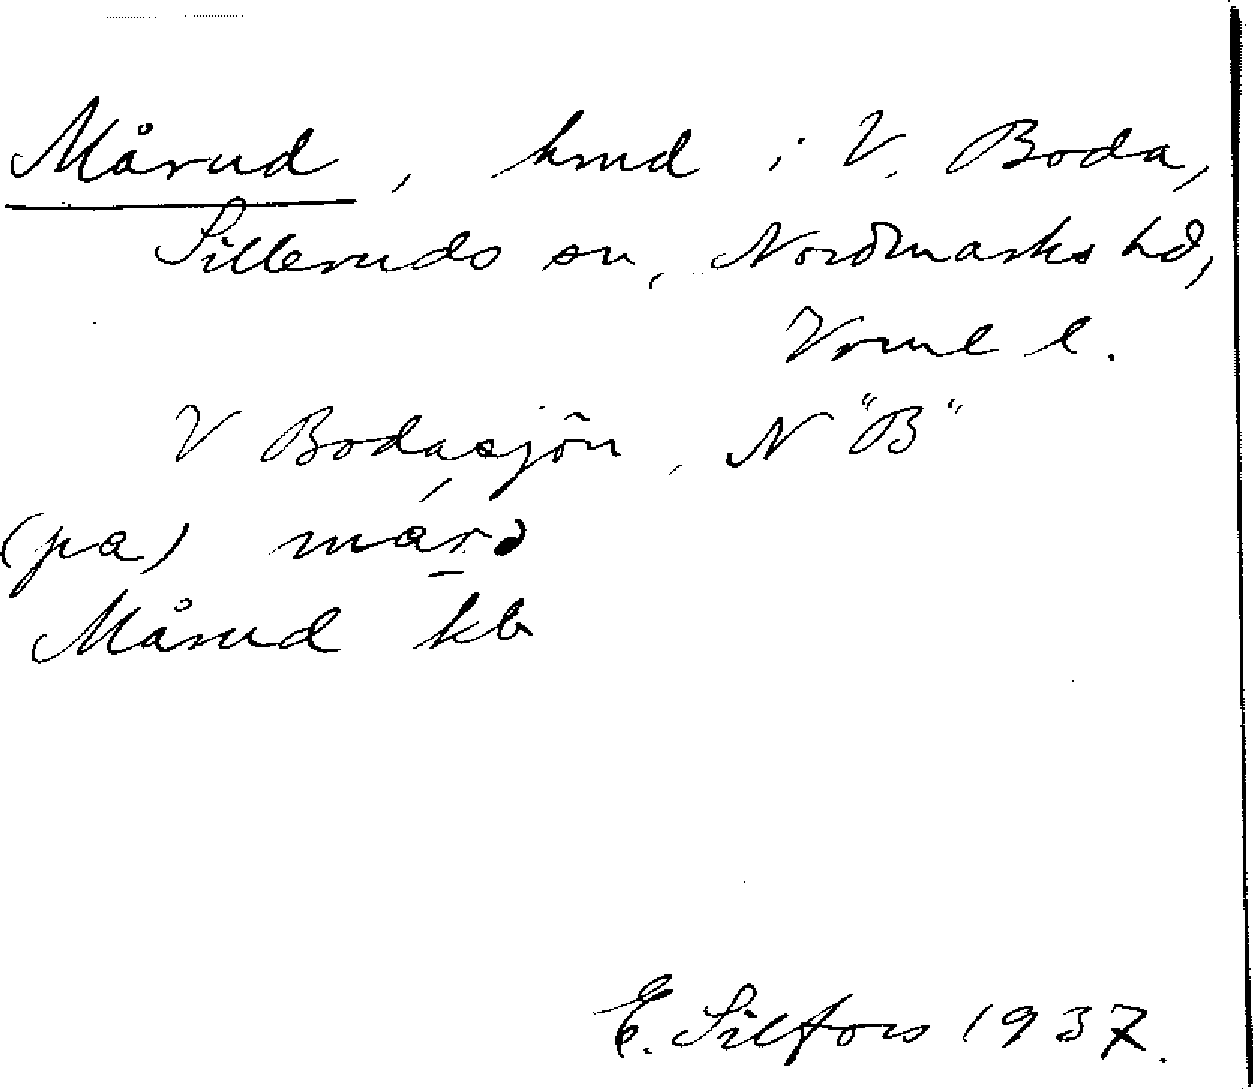 Mårud, hmd i V. Boda,
Silleruds sn, Nordmarks hd,
Vrml l.
V Bodasjön, N "B"
(pa) már
Mårud kb
E. Silfors 1937.